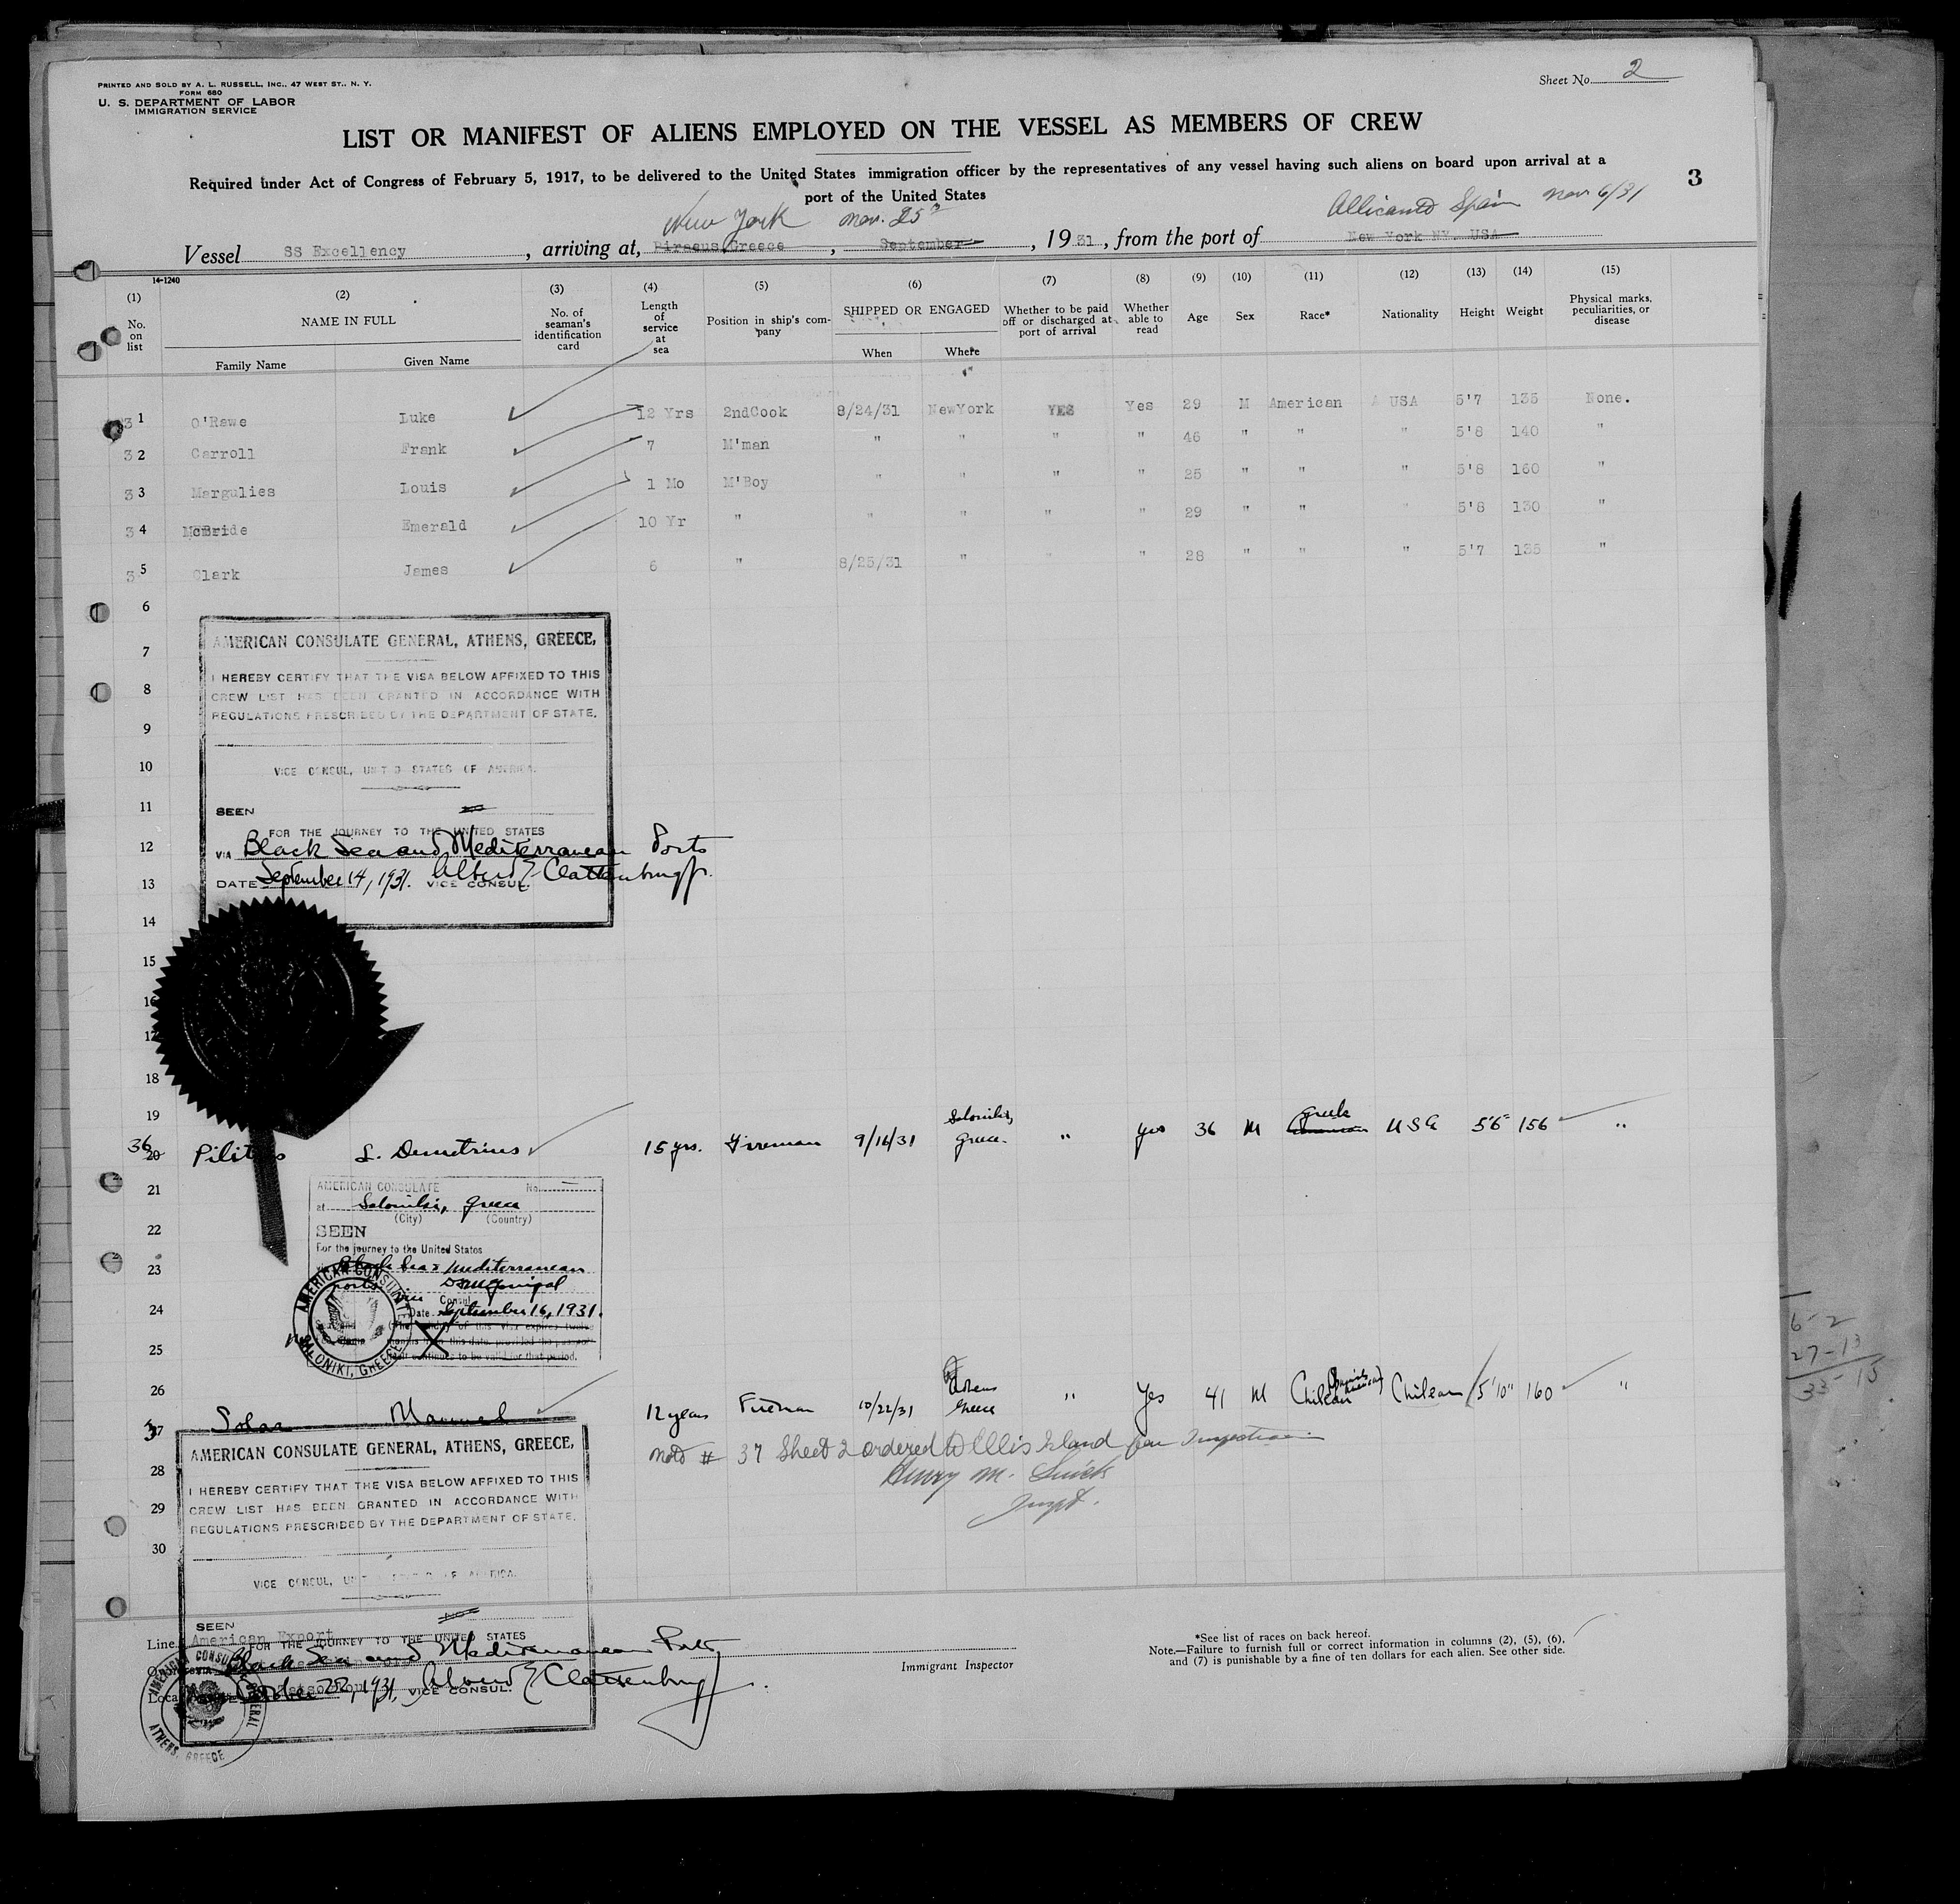 PRINTED AND SOLD BY A. L. RUSSELL, INC., 47 WEST ST., N. Y.
FORM 680
U. S. DEPARTMENT OF LABOR
IMMIGRATION SERVICE
Sheet No. 2
LIST OR MANIFEST OF ALIENS EMPLOYED ON THE VESSEL AS MEMBERS OF CREW
Required under Act of Congress of February 5, 1917, to be delivered to the United States immigration officer by the representatives of any vessel having such aliens on board upon arrival at a
port of the United States
3
New York Nov. 25 Spain Nov 6/31
Vessel SS Excellency, arriving at, Piraeus, Greece, September, 1931, from the port of New York NY. USA
14-1240
(1) (2) (3) (4) (5) (6) (7) (8) (9) (10) (11) (12) (13) (14) (15)
No. on list
NAME IN FULL
Family Name Given Name
No. of seaman's identification card
Length of service at sea
Position in ship's company
SHIPPED OR ENGAGED
When Where
Whether to be paid off or discharged at port of arrival
Whether able to read
Age Sex Race* Nationality Height Weight
Physical marks, peculiarities, or disease
31 O'Rawe Luke 12 Yrs 2ndCook 8/24/31 NewYork YES Yes 29 M American USA 5'7 135 None.
32 Carroll Frank 7 M'man " " " " 46 " " " 5'8 140 "
33 Margulies Louis 1 Mo M'Boy " " " " 25 " " " 5'8 160 "
34 McBride Emerald 10 Yr " " " " " 29 " " " 5'8 130 "
35 Clark James 6 " 8/25/31 " " " 28 " " " 5'7 135 "
6
7
8
9
10
11
12
13
14
15
16
17
18
19
AMERICAN CONSULATE GENERAL, ATHENS, GREECE,
I HEREBY CERTIFY THAT THE VISA BELOW AFFIXED TO THIS
CREW LIST HAS BEEN GRANTED IN ACCORDANCE WITH
REGULATIONS PRESCRIBED BY THE DEPARTMENT OF STATE.
VICE CONSUL, UNITED STATES OF AMERICA.
SEEN
FOR THE JOURNEY TO THE UNITED STATES
VIA Black Sea and Mediterranean Ports
DATE September 14, 1931. VICE CONSUL.
36 20 L. Demetrius 15 yrs. Fireman 9/16/31 Saloniki, Greece. " yes 36 M Greek USA 5'6" 156 "
21
22
23
24
25
26
AMERICAN CONSULATE No.
at Saloniki, Greece
(City) (Country)
SEEN
For the journey to the United States
Black Sea & Mediterranean
ports
Consul
Date September 16, 1931.
AMERICAN CONSULATE
SALONIKI, GREECE
37 Manuel 12 years Fireman 10/22/31 Athens Greece " Yes 41 M Chilean Chilean 5'10" 160 "
Note # 37 Sheet 2 ordered to Ellis Island for Inspection
Henry M.
Inspt.
28
29
30
AMERICAN CONSULATE GENERAL, ATHENS, GREECE,
I HEREBY CERTIFY THAT THE VISA BELOW AFFIXED TO THIS
CREW LIST HAS BEEN GRANTED IN ACCORDANCE WITH
REGULATIONS PRESCRIBED BY THE DEPARTMENT OF STATE.
VICE CONSUL,
SEEN
Line American Export
FOR THE JOURNEY TO THE UNITED STATES
Black Sea and Mediterranean Ports
October 22, 1931. VICE CONSUL.
AMERICAN CONSULATE GENERAL
ATHENS, GREECE
Immigrant Inspector
*See list of races on back hereof.
Note.—Failure to furnish full or correct information in columns (2), (5), (6),
and (7) is punishable by a fine of ten dollars for each alien. See other side.
6-2
27-13
33-15